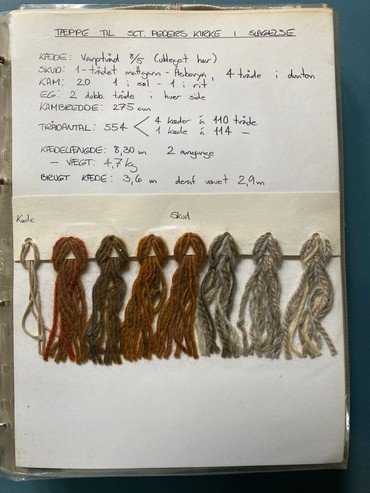 TÆPPE TIL SCT. PEDERS KIRKE I SLAGELSE
KÆDE: Varptråd 8/5 (ubleget hør)
SKUD: 1-trådet måttegarn - Asborya, 4 tråde i dunten
KAM: 20 1 i søl - 1 i rit
EG: 2 dobb. tråde i hver side
KAMBREDDE: 275 cm
TRÅDANTAL: 554 < 4 kæder á 110 tråde
1 kæde á 114 -
KÆDELÆNGDE: 8,30 m 2 omgange
- VÆGT: 4,7 kg
BRUGT KÆDE: 3,6 m deraf vævet 2,9 m
Kæde
Skud